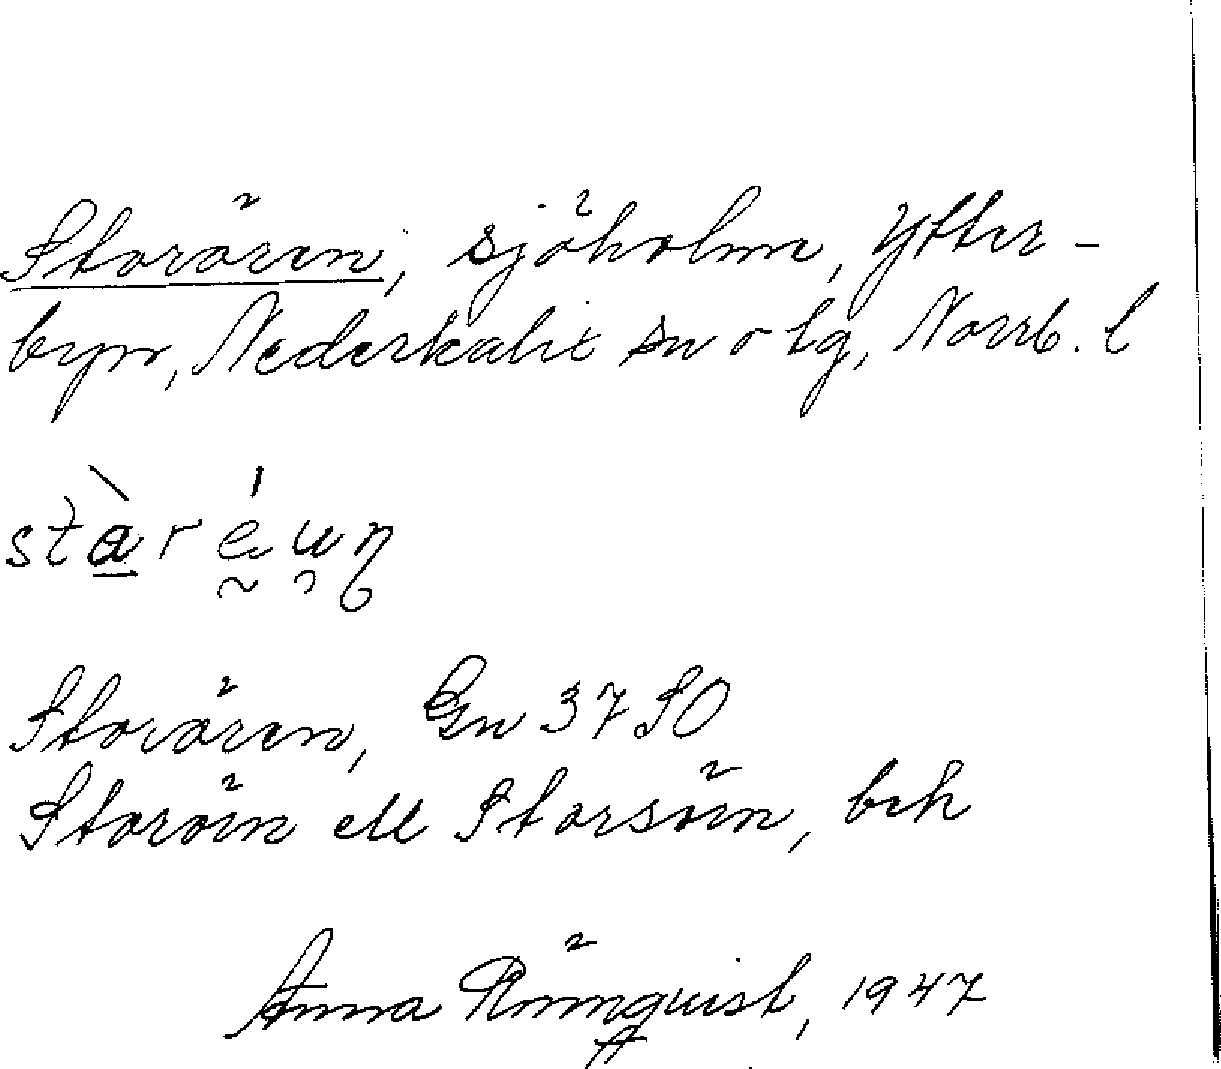 Storören, sjöholme, Ytter-
byn, Nederkalix sn o tg, Norrb. l
Storören, Gn 37 SO
Storöin ell Storsöin, brk
Anna Rönnquist, 1947